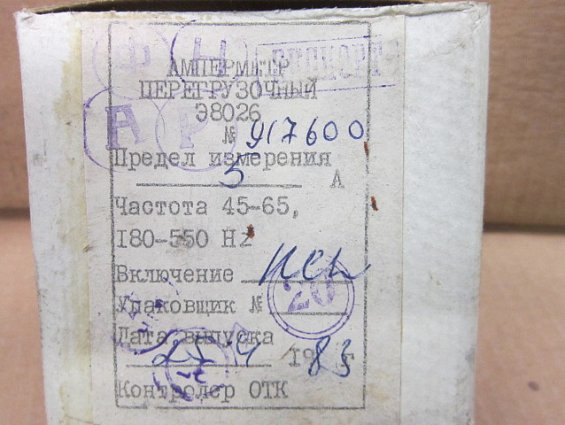 АМПЕРМЕТР
ПЕРЕГРУЗОЧНЫЙ
Э8026
№ 917600
Предел измерения
5 А
Частота 45-65,
180-550 Hz
Включение
Упаковщик № 20
Дата выпуска
1983 г
Контролер ОТК